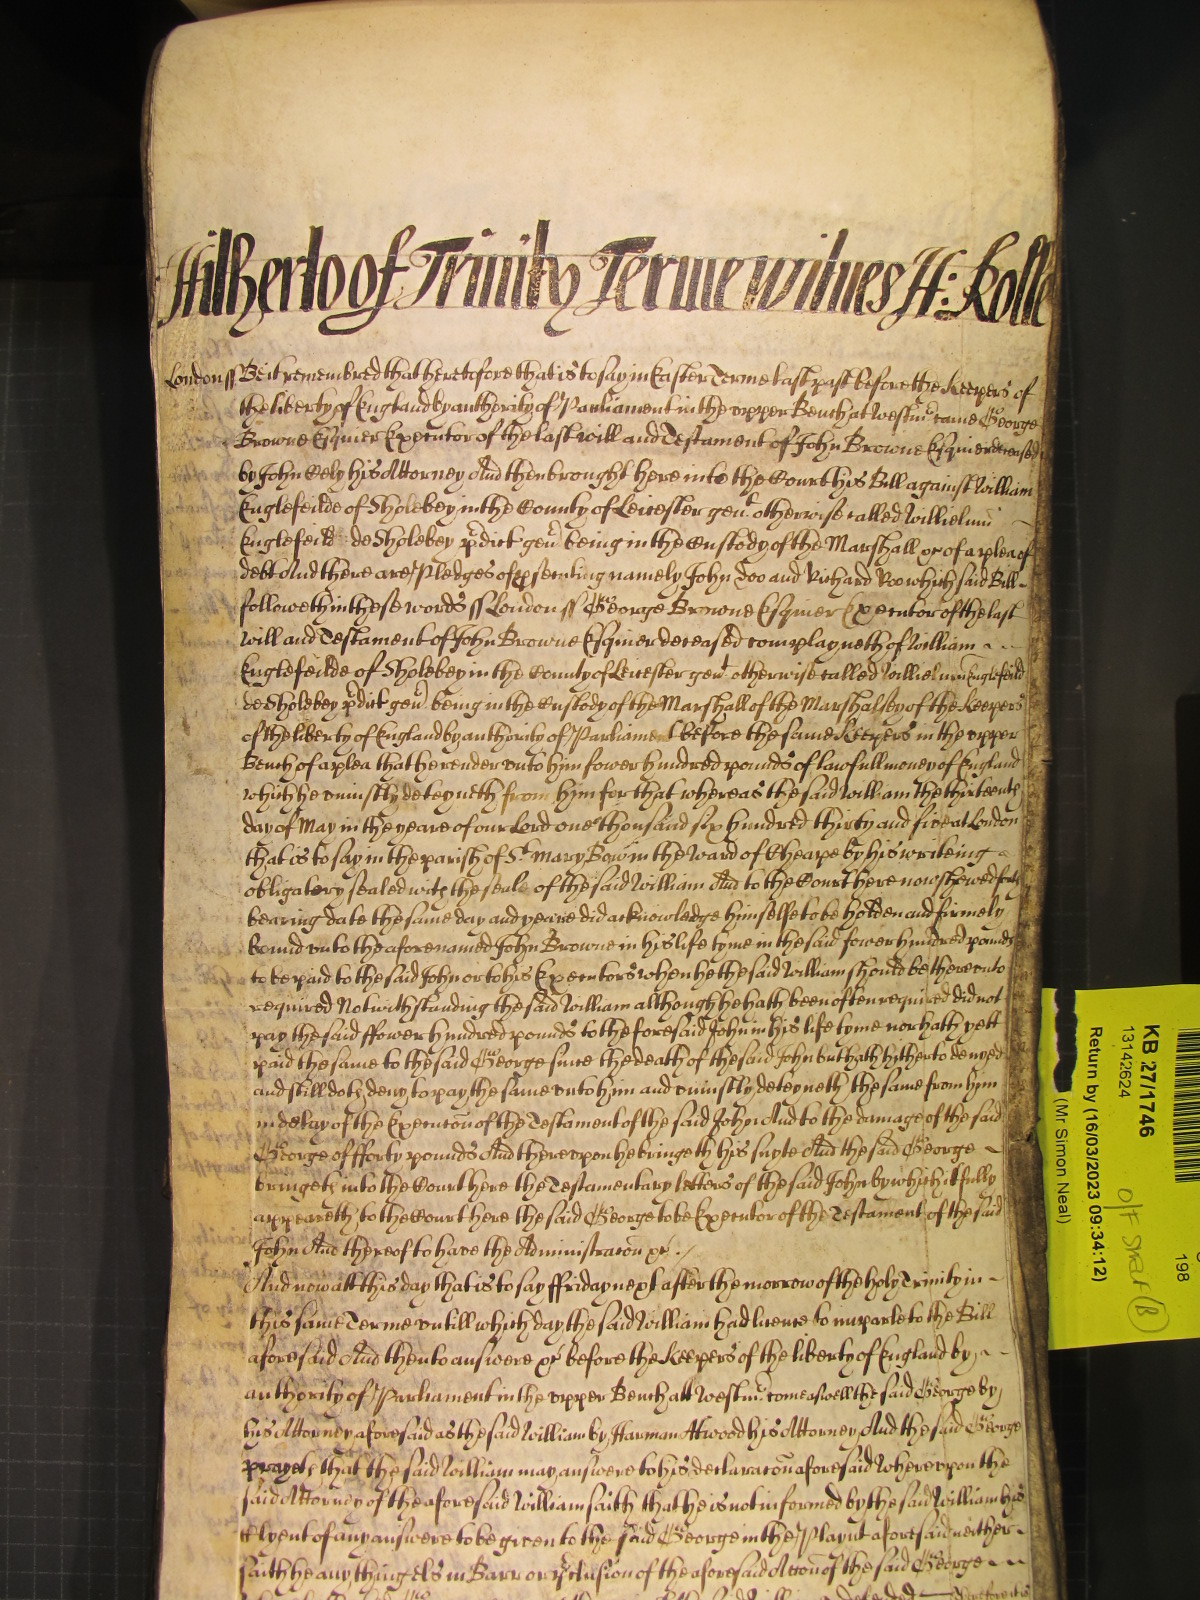 Hitherto of Trinity Terme witnes H: Rolle
London ss Be it remembred that heretofore that is to say in Easter Terme last past before the Keepers of
the liberty of England by authority of Parliament in the vpper Bench at Westmr. came George
Browne Esquier Executor of the last will and Testament of John Browne Esquier deceased
by John Cely his Attorney And then brought here into the Court his Bill against William
Englefeilde of Sholebey in the County of Leicester gent. otherwise called Willielmu
Englefeild de Sholebey pdict gen. being in the Custody of the Marshall &c of a plea of
debt And there are Pledges of psecuting namely John Doo and Richard Roo which said Bill
followeth in these words ss London ss George Browne Esquier Executor of the last
will and Testament of John Browne Esquier deceased complayneth of William
Englefeilde of Sholebey in the County of Leicester gent. otherwise called Willielmu Englefeild
de Sholebey pdict gen. being in the Custody of the Marshall of the Marshalsey of the Keepers
of the liberty of England by authority of Parliament before the same Keepers in the vpper
Bench of a plea that he render vnto him fower hundred pounds of lawfull money of England
which he vniustly deteyneth from him for that whereas the said William the thirteenth
day of May in the yeare of our Lord one thousand six hundred thirty and five at London
that is to say in the parish of St. Mary Bow in the ward of Cheape by his writeing
obligatory sealed with the seale of the said William And to the Court here now shewed forth
bearing date the same day and yeare did acknowledge himselfe to be holden and firmely
bound vnto the aforenamed John Browne in his life tyme in the said fower hundred pounds
to be paid to the said John or to his Executors when he the said William should be therevnto
required Notwithstanding the said William although he hath been often required did not
pay the said ffower hundred pounds to the foresaid John in his life tyme nor hath yett
paid the same to the said George since the death of the said John but hath hitherto denyed
and still doth deny to pay the same vnto him and vniustly deteyneth the same from him
in delay of the Execucon of the Testament of the said John And to the damage of the said
George of fforty pounds And therevpon he bringeth his suyte And the said George
bringeth into the Court here the Testamentary letters of the said John by which it fully
appeareth to the Court here the said George to be Executor of the Testament of the said
John And thereof to have the Administracon &c.
And now att this day that is to say ffriday next after the morrow of the holy Trinity in
this same Terme vntill which day the said William had licence to imparle to the Bill
aforesaid And then to answere &c before the Keepers of the liberty of England by
authority of Parliament in the vpper Bench att Westmr. come aswell the said George by
his Attorney aforesaid as the said William by Harman Atwood his Attorney And the said George
prayeth that the said William may answere to his declaracon aforesaid Wherevpon the
said Attorney of the aforesaid William saith that he is not informed by the said William his
Clyent of any answere to be given to the said George in the Playnt aforesaid neither
saith he any thing els in Barr or pclusion of the aforesaid Accon of the said George
KB 27/1746
13142624
Return by (16/03/2023 09:34:12)
(Mr Simon Neal)
198